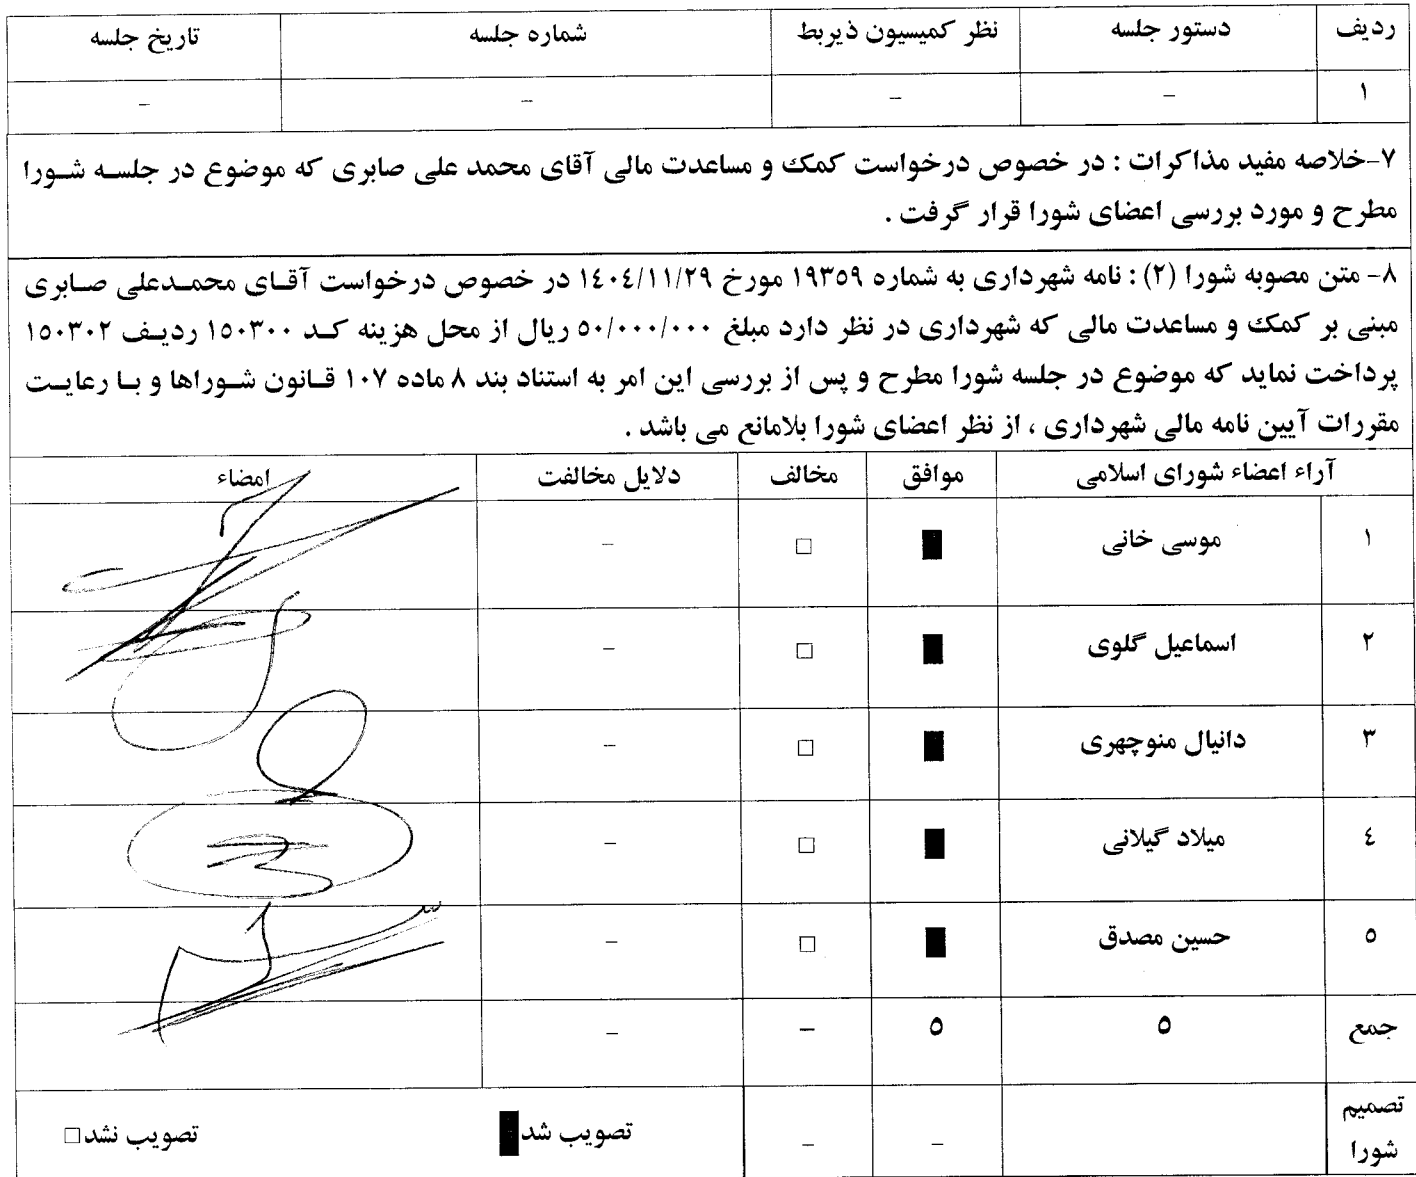 ردیف دستور جلسه نظر کمیسیون ذیربط شماره جلسه تاریخ جلسه
١ - - - -
۷-خلاصه مفید مذاکرات : در خصوص درخواست کمک و مساعدت مالی آقای محمد علی صابری که موضوع در جلسه شورا
مطرح و مورد بررسی اعضای شورا قرار گرفت .
۸- متن مصوبه شورا (۲) : نامه شهرداری به شماره ۱۹۳۵۹ مورخ ١٤٠٤/١١/٢٩ در خصوص درخواست آقای محمدعلی صابری
مبنی بر کمک و مساعدت مالی که شهرداری در نظر دارد مبلغ ٥٠/٠٠٠/٠٠٠ ریال از محل هزینه کد ١٥٠٣٠٠ ردیف ١٥٠٣٠٢
پرداخت نماید که موضوع در جلسه شورا مطرح و پس از بررسی این امر به استناد بند ۸ ماده ۱۰۷ قانون شوراها و با رعایت
مقررات آیین نامه مالی شهرداری ، از نظر اعضای شورا بلامانع می باشد .
آراء اعضاء شورای اسلامی موافق مخالف دلایل مخالفت امضاء
١ موسی خانی ■ □ -
٢ اسماعیل گلوی ■ □ -
٣ دانیال منوچهری ■ □ -
٤ میلاد گیلانی ■ □ -
٥ حسین مصدق ■ □ -
جمع ٥ ٥ - -
تصمیم
شورا - - تصویب شد■ تصویب نشد□